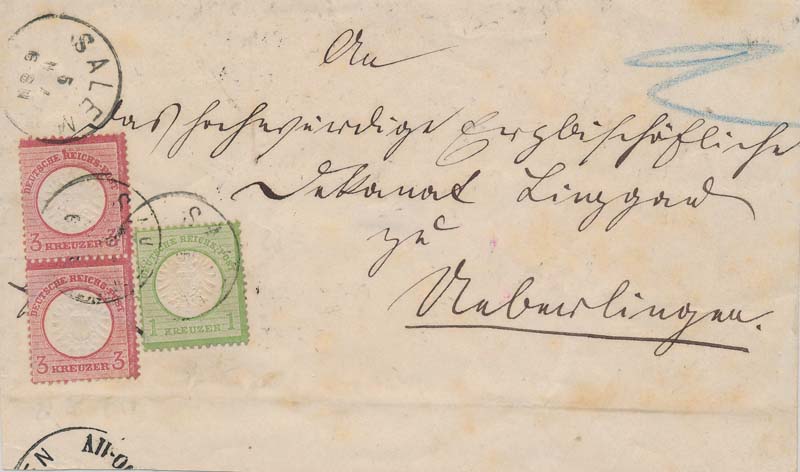 An
das hochwürdige Erzbischöfliche
Dekanat Linzgau
zu
Ueberlingen.
SALEM
5
DEUTSCHE REICHS-POST
3 KREUZER 3
DEUTSCHE REICHS-POST
3 KREUZER 3
DEUTSCHE REICHS-POST
1 KREUZER 1